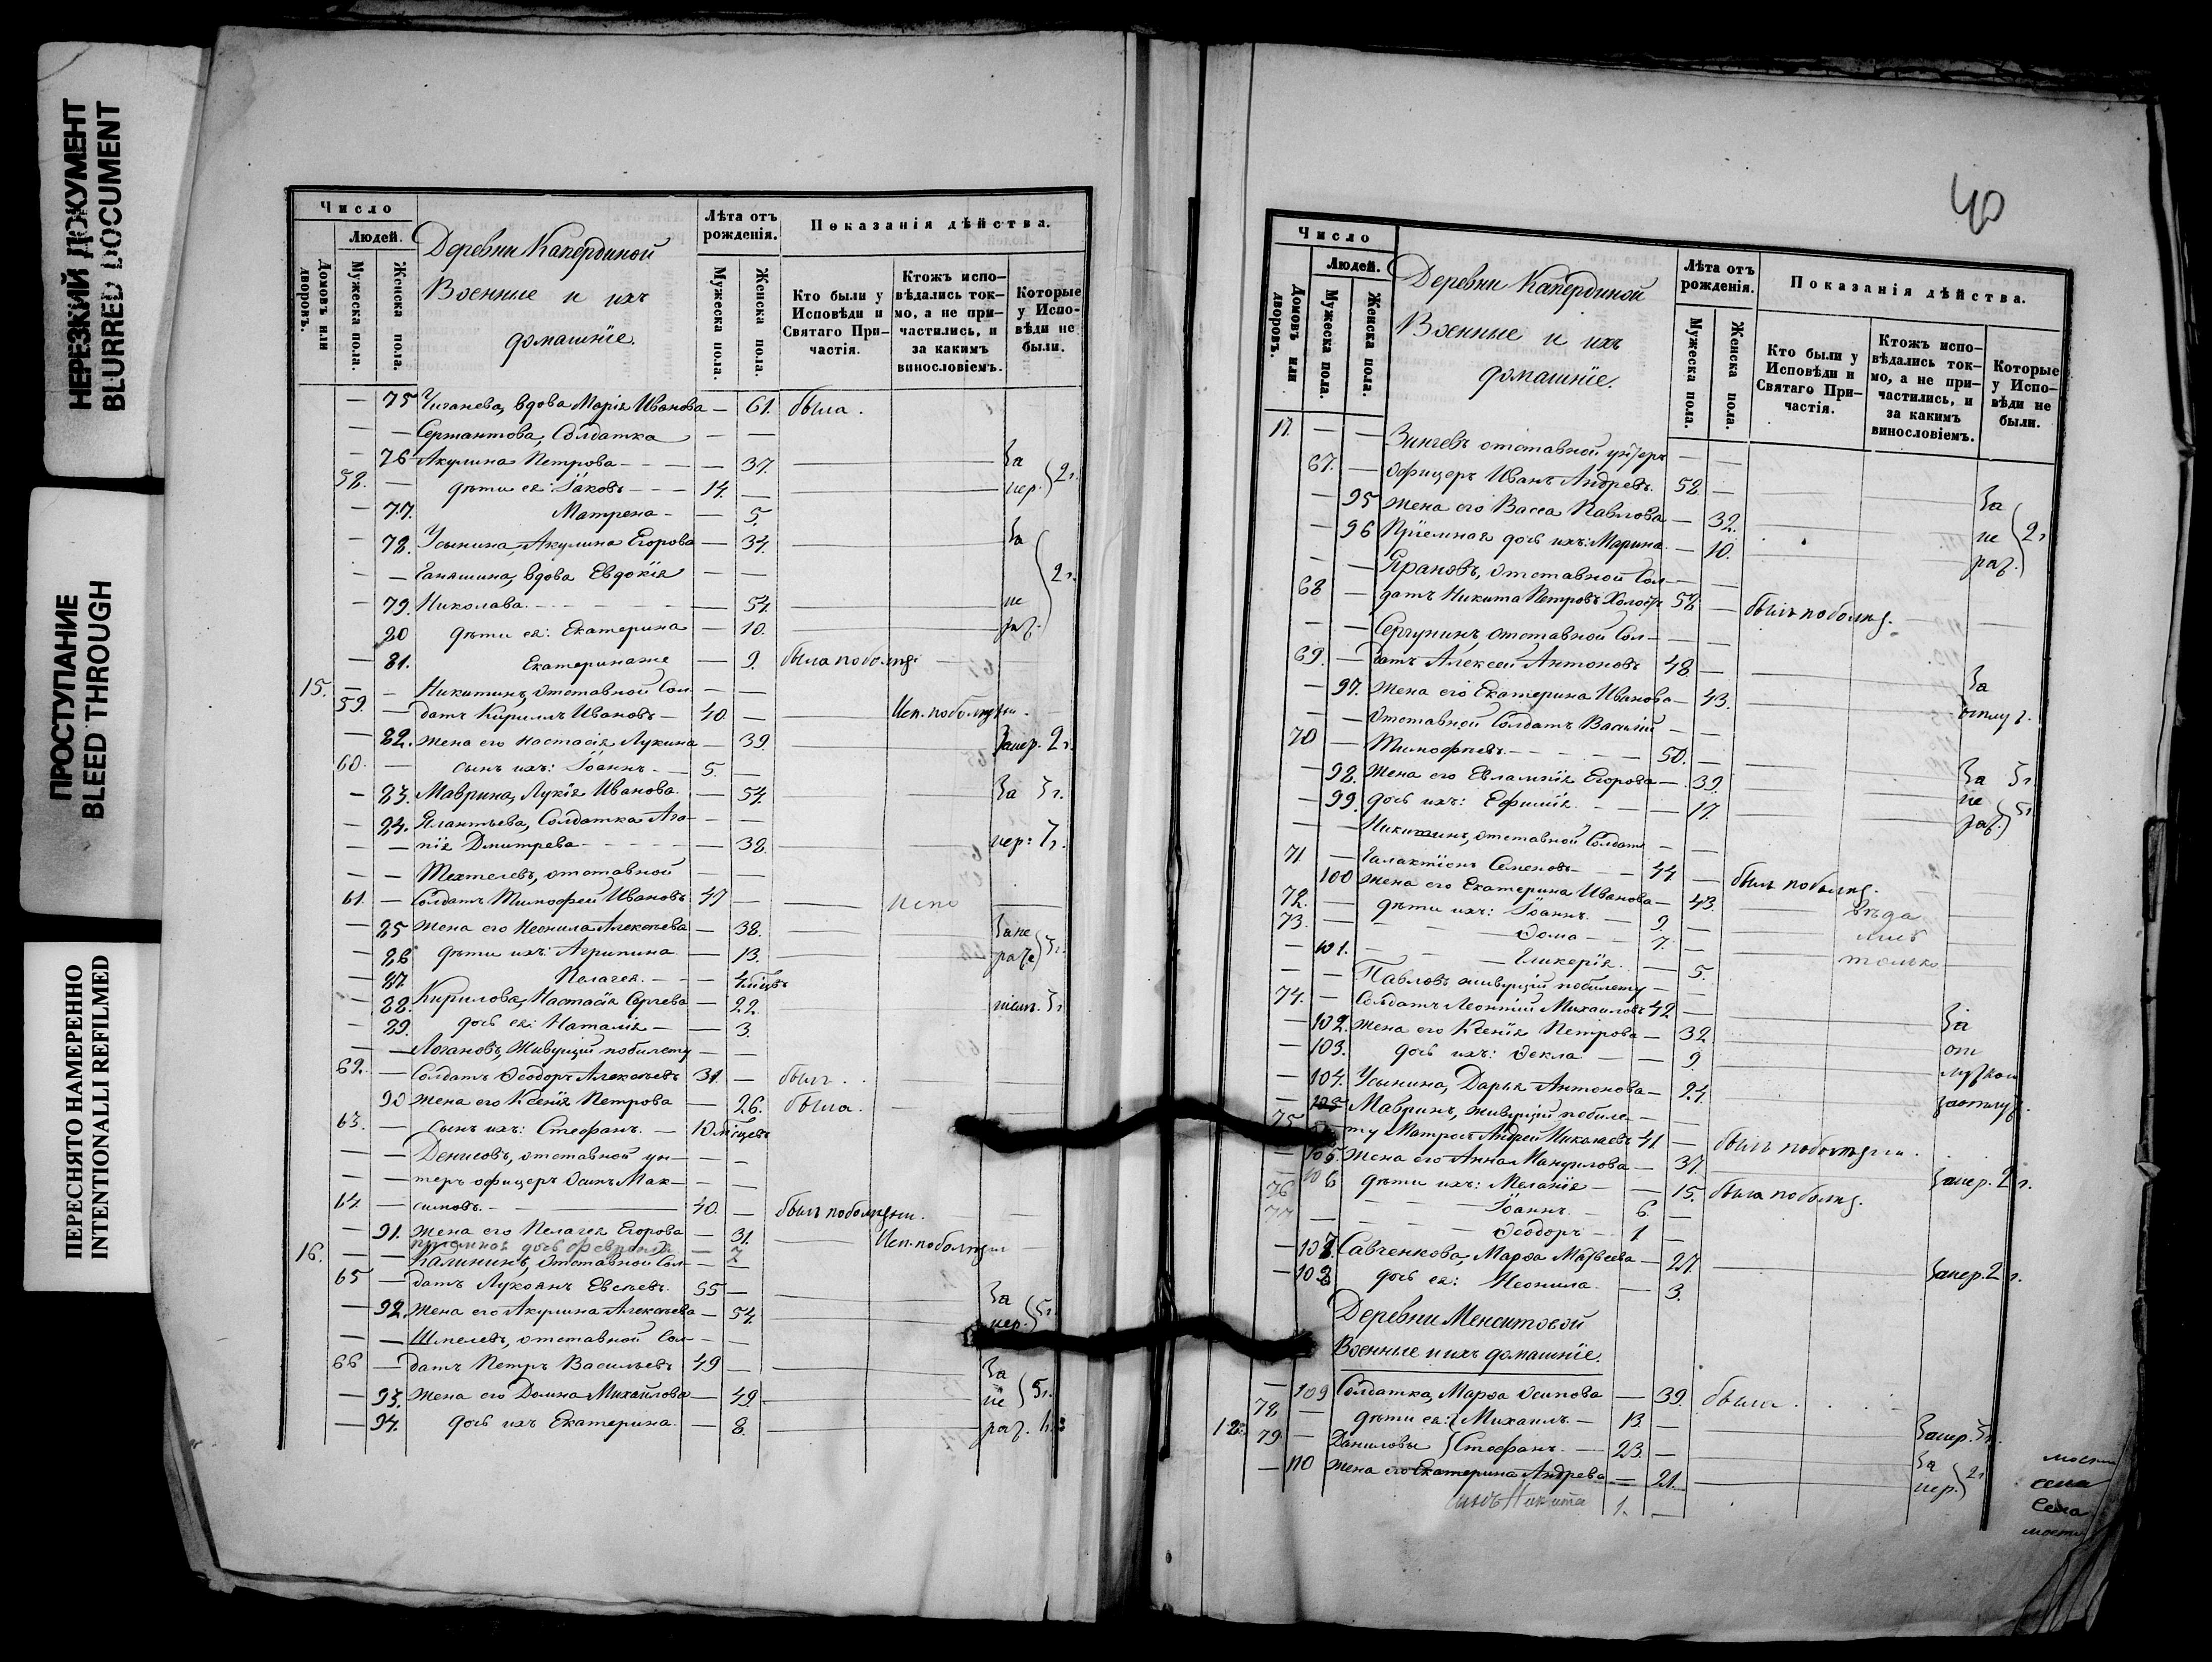 НЕРЕЗКИЙ ДОКУМЕНТ
BLURRED DOCUMENT
ПРОСТУПАНИЕ
BLEED THROUGH
ПЕРЕСНЯТО НАМЕРЕННО
INTENTIONALLI REFILMED
Число
Домовъ или дворовъ.
Людей.
Мужеска пола.
Женска пола.
Деревни Капердиной
Военные и ихъ
домашніе.
Лѣта отъ рожденія.
Мужеска пола.
Женска пола.
Показанія дѣйства.
Кто были у Исповѣди и Святаго Причастія.
Ктожъ исповѣдались токмо, а не причастились, и за какимъ винословіемъ.
Которые у Исповѣди не были.
— 75 Чиганева, вдова Марія Иванова — 61. была.
— — Сержантова, Солдатка — —
— 76 Акулина Петрова — 37. За
58. — дѣти ея: Іаковъ 14. — нер. 2 г.
— 77. Матрена — 5.
— 78. Усынина, Акулина Егорова — 34. За
— — Ганяшина, вдова Евдокія — — 2 г.
— 79. Николаева — 54. не
80 дѣти ея: Екатерина — 10. раз.
— 81. Екатерина же — 9. была по болѣз.
15. — — Никитинъ, отставной Сол- — —
59. — датъ Кириллъ Ивановъ 40. — Исп. по болѣзни
— 82. жена его Настасія Лукина — 39. Занер. 2 г.
60. — сынъ ихъ: Іоаннъ 5. —
— 83. Маврина, Лукія Иванова — 54. За 3 г.
— 84. Солдатка Ага- — —
— — пія Дмитрева — 38. нер: 7 г.
— — отставной — —
61. — Солдатъ Тимофей Ивановъ 47 —
— 85 жена его Неонила Алексѣева — 38. За не
— 86 дѣти ихъ: Агрипина — 13. раз. 3 г.
— 87. Пелагея — 4 мѣсць
— 88. Кирилова, Настасія Сергева — 22.
— 89. дочь ея: Наталія — 3.
— — Логановъ, живущій по билету — —
62. — Солдатъ Ѳеодоръ Алексѣевъ 31. — былъ.
90 жена его Ксенія Петрова — 26. была.
63. — сынъ ихъ: Стефанъ — 10 мѣсцевъ
— — Денисовъ, отставной ун- — —
— — теръ офицеръ Осипъ Мак- — —
64. — симовъ 40. — былъ по болѣзни.
— 91. жена его Пелагея Егорова — 31. Исп. по болѣзни
пріемная дочь — 7
16. — — Калининъ, отставной Сол- — —
65 — датъ Лукоянъ Евсѣевъ 55 — За
— 92. жена его Акулина Алексѣева — 54. нер. 3 г.
— — Шмелевъ, отставной Сол- — —
66 — датъ Петръ Васильевъ 49 — За
— 93. жена его Домна Михайлова — 49. не 5 г.
— 94. дочь ихъ Екатерина — 8. раз.
40
Число
Домовъ или дворовъ.
Людей.
Мужеска пола.
Женска пола.
Деревни Капердиной
Военные и ихъ
домашніе.
Лѣта отъ рожденія.
Мужеска пола.
Женска пола.
Показанія дѣйства.
Кто были у Исповѣди и Святаго Причастія.
Ктожъ исповѣдались токмо, а не причастились, и за какимъ винословіемъ.
Которые у Исповѣди не были.
17. — — Зинчевъ отставной унтеръ — —
67. — офицеръ Иванъ Андревъ 58. — За
— 95 жена его Васса Павлова — 32. не 2 г
— 96 Пріемная дочь ихъ: Марина — 10. раз.
— — отставной Сол- — —
68 — датъ Никита Петровъ Холостъ 58 — былъ по болѣз.
— — Сергунинъ, отставной Сол- — —
69. — датъ Алексей Антоновъ 48 — За
— 97. жена его Екатерина Иванова — 43. отлуч.
— — Отставной Солдатъ Василій — —
70 — Тимофеевъ 50. —
— 98. жена его Евлампія Егорова — 39. За 3 г.
— 99. дочь ихъ: Ефимія — 17. не раз. 5 г.
— — Никитинъ, отставной Солдатъ — —
71 — Галактіонъ Семеновъ 44 — былъ по болѣз.
100 жена его Екатерина Иванова — 43.
72. — дѣти ихъ: Іоаннъ 9. —
73. — Ѳома 7. — только
— 101. Гликерія — 5.
— — Павловъ живущій по билету — —
74. — Солдатъ Леонтій Михайловъ 42 — За
— 102. жена его Ксенія Петрова — 32 от
— 103. дочь ихъ: Ѳекла — 9
— 104. Усынина, Дарья Антонова — 24. за отлуч.
— Мавринъ, живущій по биле- — —
75 ту Матросъ Андрей Николаевъ 41 — былъ по болѣзни.
— 105. жена его Анна Мануилова — 37. Занер. 2 г.
— 106 дѣти ихъ: Меланія — 15. была по болѣз.
76 — Іоаннъ 6. —
77 — Ѳеодоръ 1 —
— 107. Савченкова, Марѳа Матвеева — 27. Занер. 2 г.
— 108 дочь ея: Неонила — 3.
Деревни Менситовой
Военные и ихъ домашніе.
— 109 Солдатка, Марѳа Осипова — 39. была.
78 — дѣти ея: Михаилъ 13. — Занер. 3 г.
18. 79. — Даниловы Стефанъ 23. — За
— 110 жена его Екатерина Андрева — 21. нер. 2 г
сынъ Никита 1. —